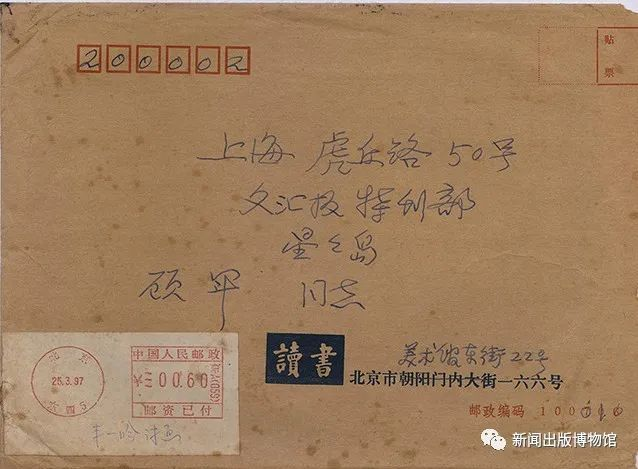 200002
贴
票
上海 虎丘路 50号
文汇报 特刊部
星之岛
顾军 同志
北京
25.3.97
中国人民邮政
¥ 00.60
邮资已付
丰一吟
讀書
美术馆东街22号
北京市朝阳门内大街一六六号
邮政编码 100010
新闻出版博物馆